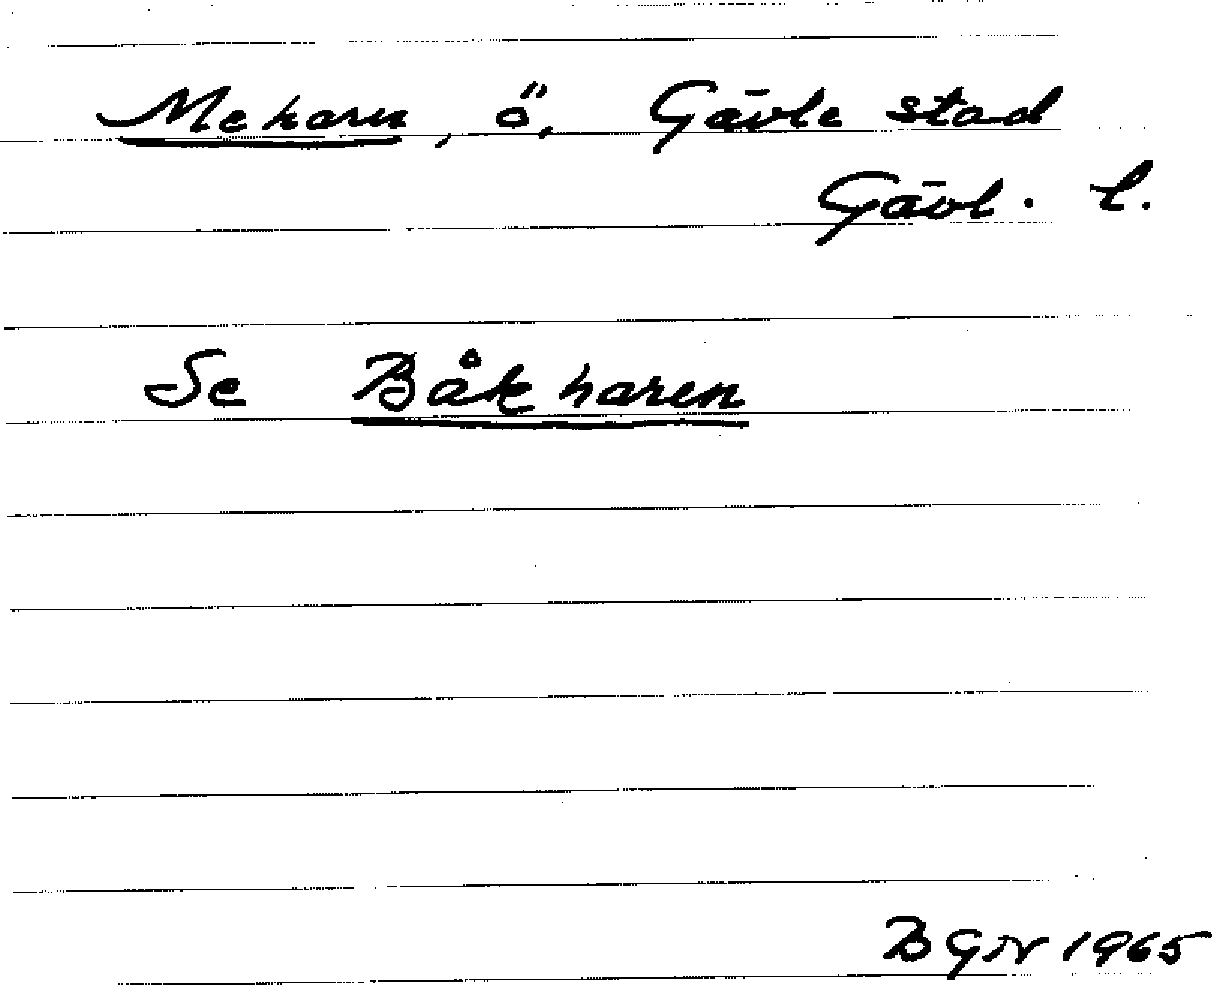 Meharn, ö, Gävle stad
Gävl. l.
Se Båkharen
BGN 1965